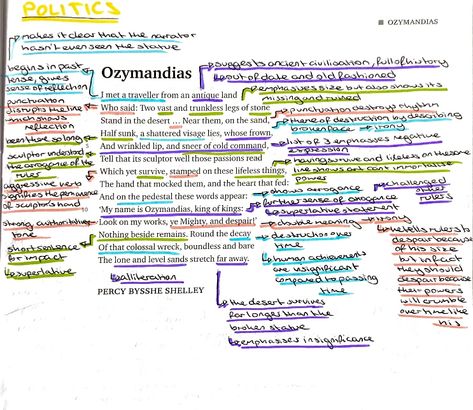 POLITICS
OZYMANDIAS
makes it clear that the narrator
hasn't even seen the statue
begins in past
tense, gives
sense of reflection
punctuation
disrupts the line
which shows
reflection
been there so long
sculptor understood
the arrogance of the
ruler
aggressive verb
signifies the permanence
of sculptor's hand
strong authoritative
tone
short sentence
for impact
superlative
Ozymandias
I met a traveller from an antique land
Who said: Two vast and trunkless legs of stone
Stand in the desert ... Near them, on the sand,
Half sunk, a shattered visage lies, whose frown,
And wrinkled lip, and sneer of cold command,
Tell that its sculptor well those passions read
Which yet survive, stamped on these lifeless things,
The hand that mocked them, and the heart that fed:
And on the pedestal these words appear:
'My name is Ozymandias, king of kings:
Look on my works, ye Mighty, and despair!'
Nothing beside remains. Round the decay
Of that colossal wreck, boundless and bare
The lone and level sands stretch far away.
alliteration
PERCY BYSSHE SHELLEY
suggests ancient civilisation, full of history
out of date and old fashioned
emphasises size but also shows its
missing and ruined
punctuation destroys rhythm
theme of destruction by describing
broken face
irony
list of 3 emphasises negative
expression
having survive and lifeless on the same
line shows art can immortalise
power
shows arrogance
challenged
other
rulers
further sense of arrogance
superlative statement
double meaning
irony
destruction over
time
human achievements
are insignificant
compared to passing
time
the desert survives
for longer than the
broken statue
emphasises insignificance
he tells rulers to
despair because
of his size
but in fact
they should
despair because
their powers
will crumble
over time like
his